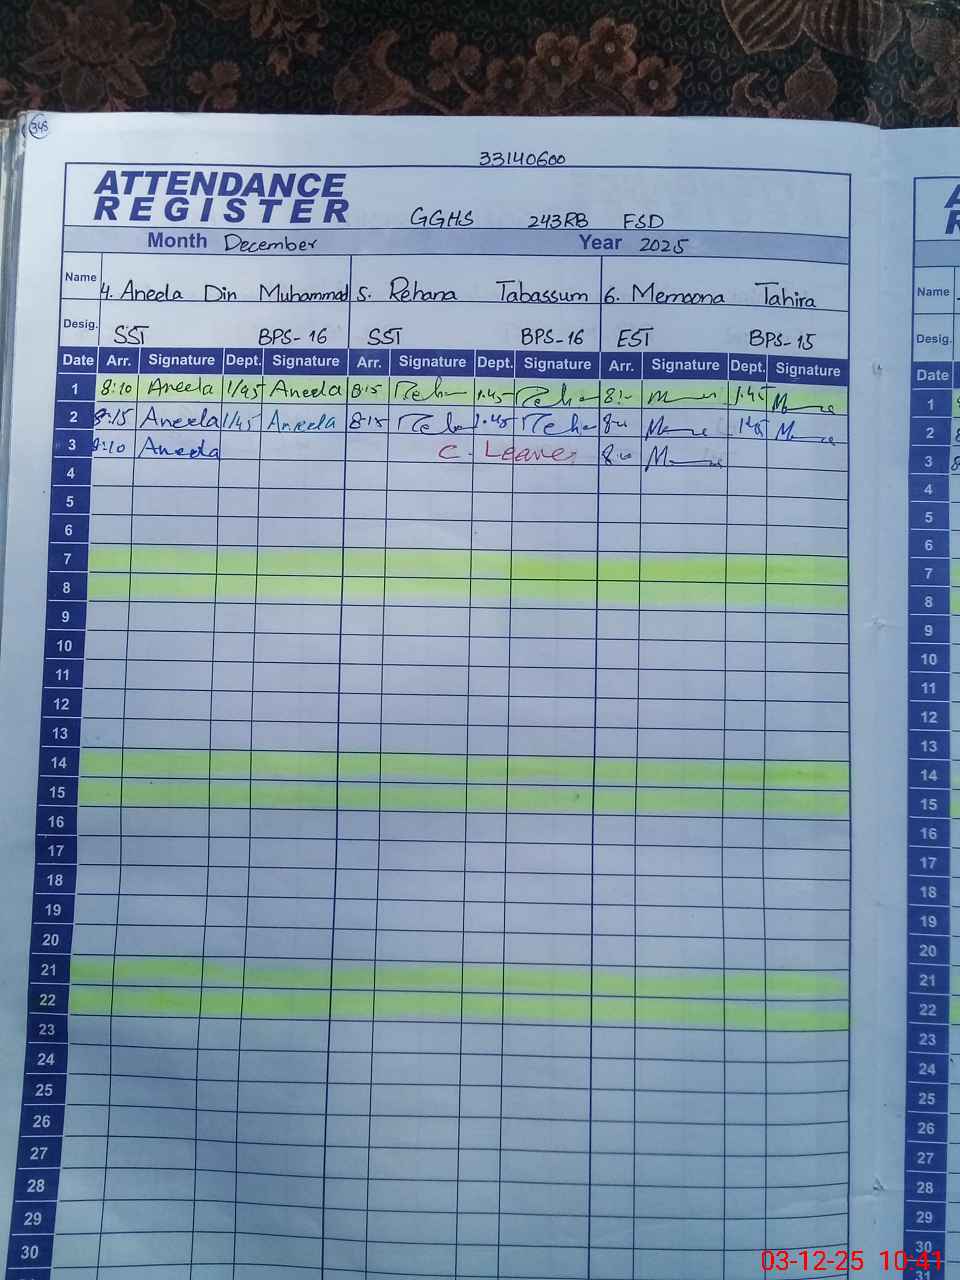 348
33140600
ATTENDANCE
REGISTER GGHS 243RB FSD
Month December Year 2025
Name 4. Aneela Din Muhammad 5. Rehana Tabassum 6. Memoona Tahira Name
Desig. SST BPS-16 SST BPS-16 EST BPS-15 Desig.
Date Arr. Signature Dept. Signature Arr. Signature Dept. Signature Arr. Signature Dept. Signature Date
1 8:10 Aneela 1/45 Aneela 8:15 1.45 1.45 1
2 8:15 Aneela 1/45 Aneela 8:15 1.45 2
3 8:10 Aneela C. Leave 3
4 4
5 5
6 6
7 7
8 8
9 9
10 10
11 11
12 12
13 13
14 14
15 15
16 16
17 17
18 18
19 19
20 20
21 21
22 22
23 23
24 24
25 25
26 26
27 27
28 28
29 29
30 30
31
03-12-25 10:41